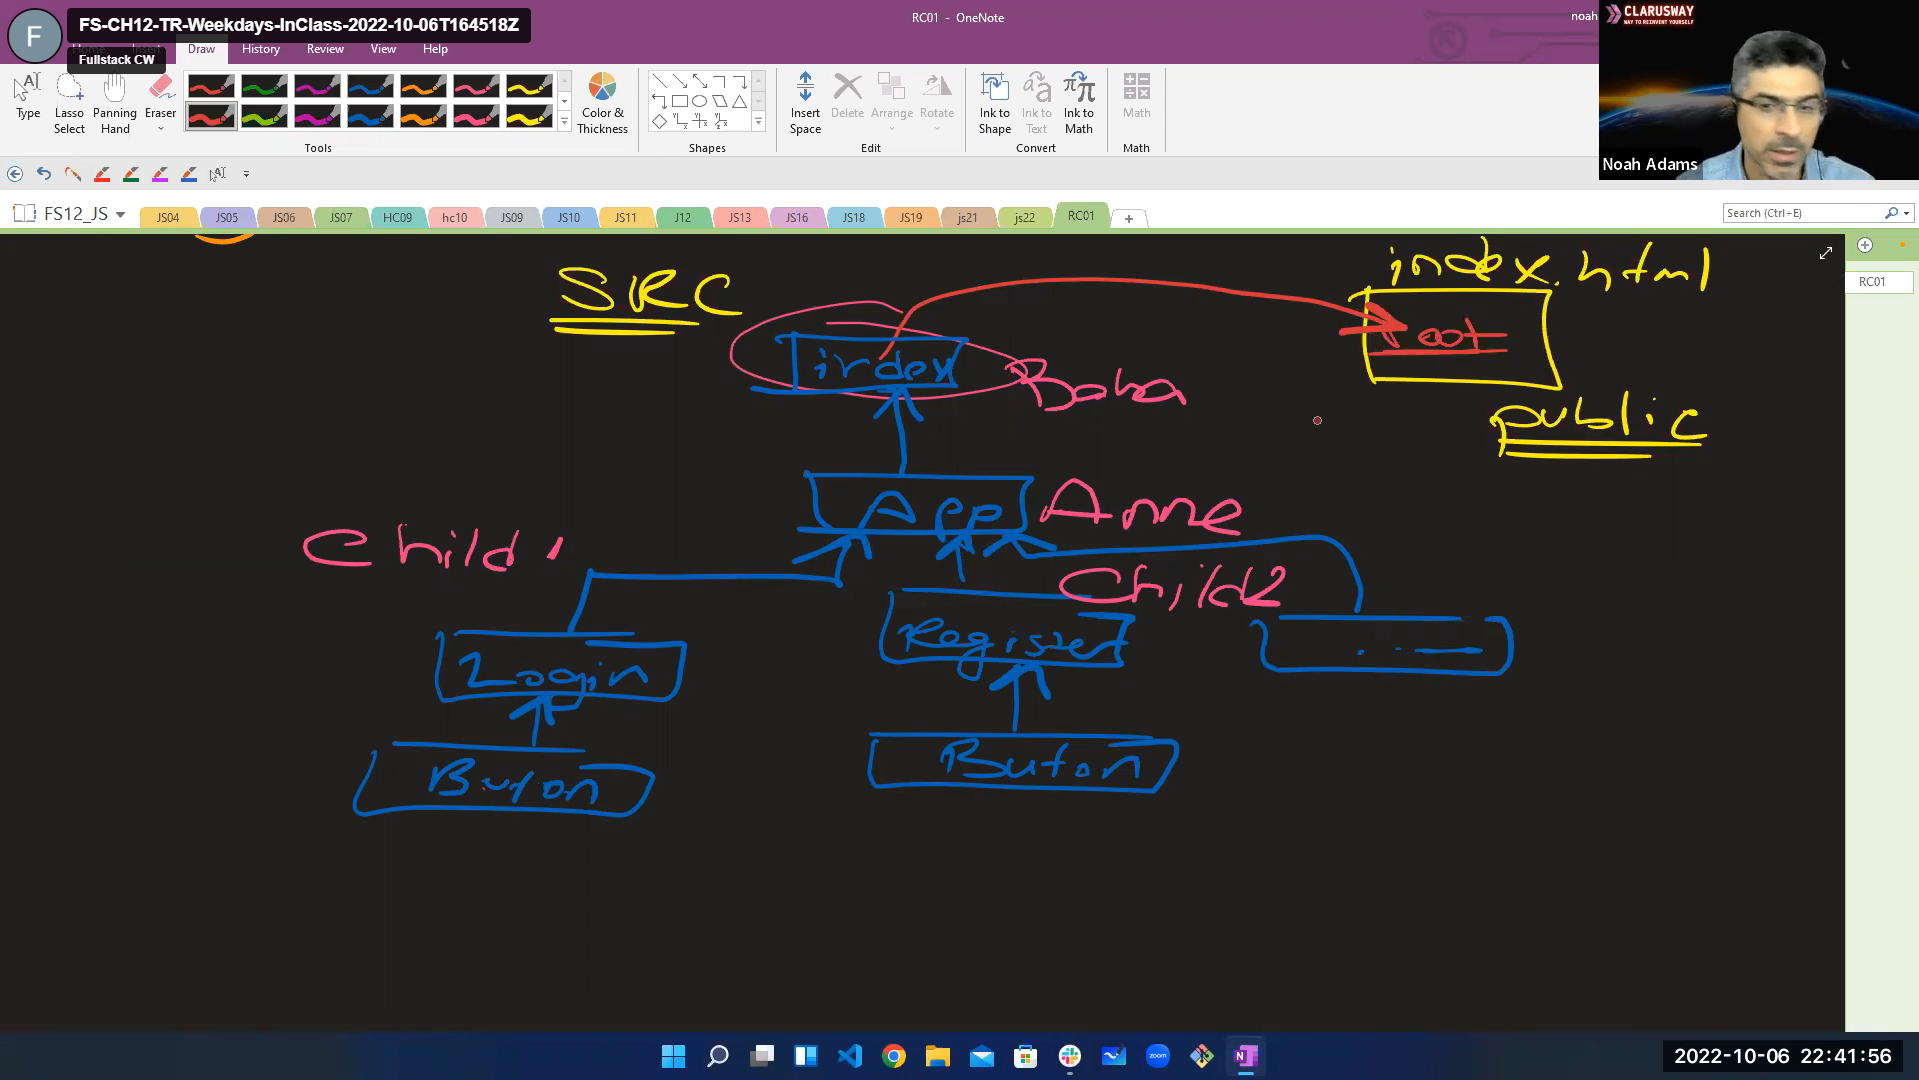 FS-CH12-TR-Weekdays-InClass-2022-10-06T164518Z
F
Fullstack CW
RC01 - OneNote
noah
CLARUSWAY
WAY TO REINVENT YOURSELF
Home Insert Draw History Review View Help
Type
Lasso Select
Panning Hand
Eraser
Color & Thickness
Insert Space
Delete
Arrange
Rotate
Ink to Shape
Ink to Text
Ink to Math
Math
Tools
Shapes
Edit
Convert
Math
Noah Adams
FS12_JS
JS04 JS05 JS06 JS07 HC09 hc10 JS09 JS10 JS11 J12 JS13 JS16 JS18 JS19 js21 js22 RC01
Search (Ctrl+E)
RC01
SRC
index.html
root
public
index
Baba
App
Anne
Child 1
Child2
Login
Register
...
Buton
Buton
zoom
N
2022-10-06 22:41:56